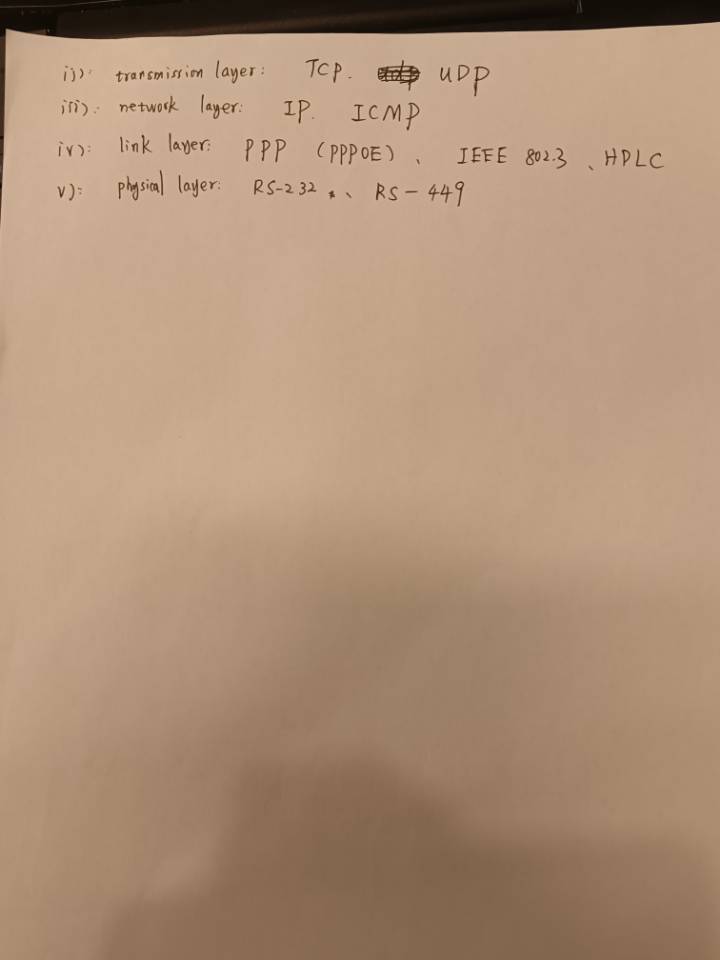 ii): transmission layer: TCP. UDP
iii): network layer: IP. ICMP
iv): link layer: PPP (PPPOE)、 IEEE 802.3、HPLC
v): physical layer: RS-232 、 RS-449